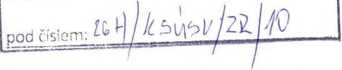 pod číslem: 26H/KSÚSV/ZR/10